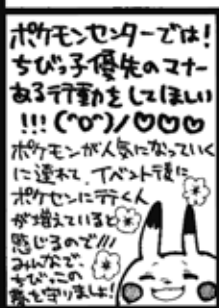 ポケモンセンターでは!
ちびっ子優先のマナー
ある行動をしてほしい
!!! (^o^)/♡♡♡
ポケモンが人気になっていく
に連れて、イベント後に
ポケセンに行く人
が増えていると
感じるので///
みんなで、
ちびっこの
夢を守りましょ!